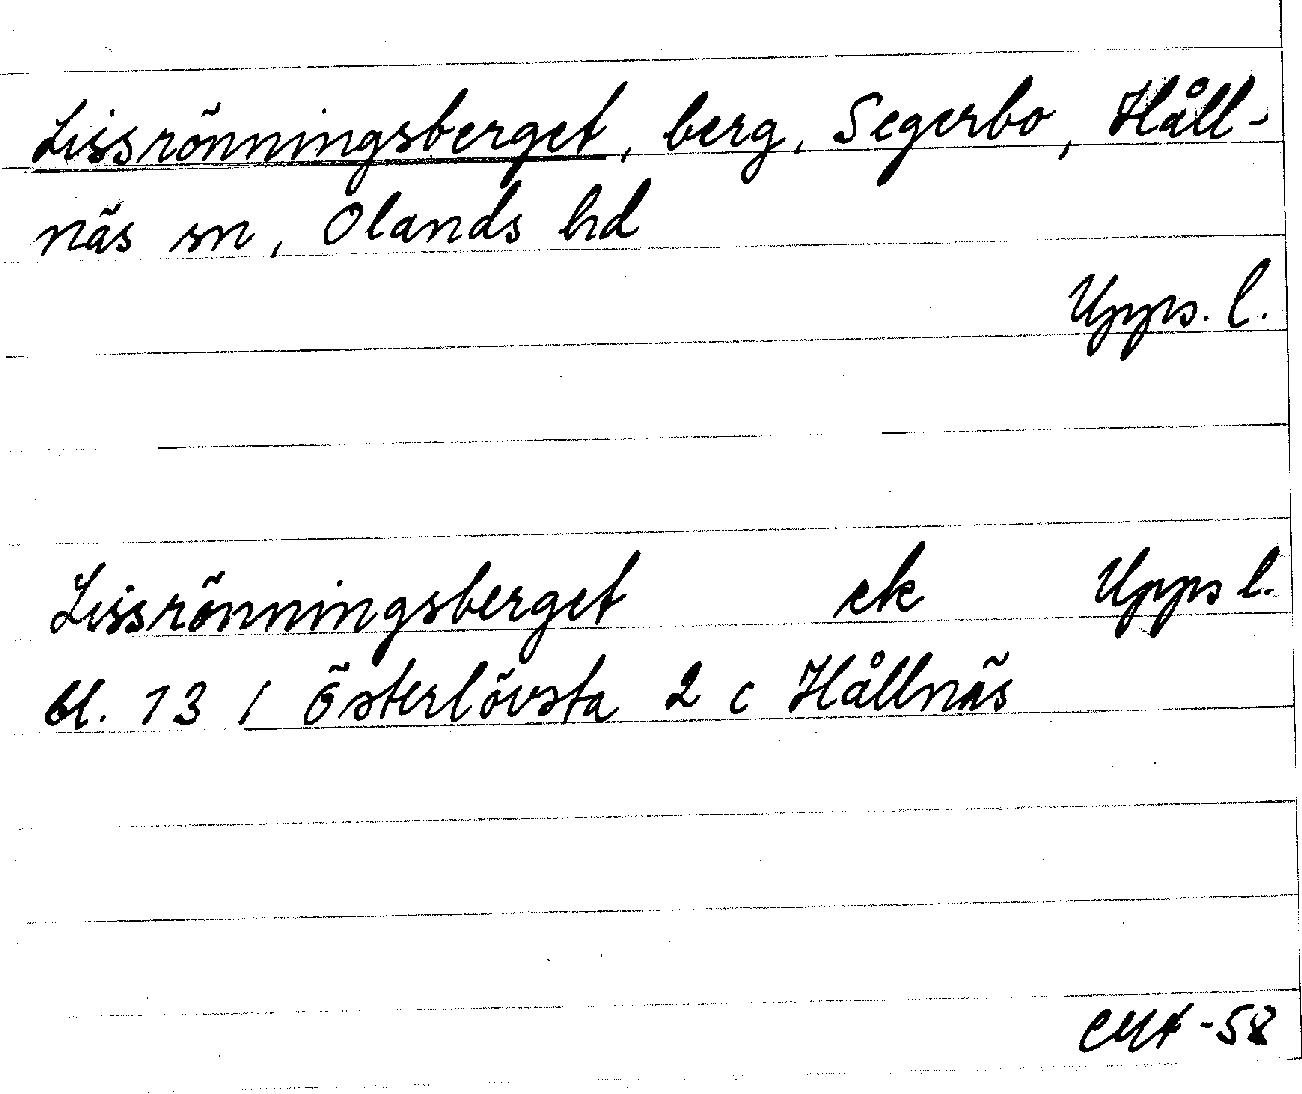 Lissrönningsberget, berg, Segerbo, Håll-
näs sn, Olands hd
Upps. l.
Lissrönningsberget ek Upps l.
bl. 13 / Österlövsta 2 c Hållnäs
-58